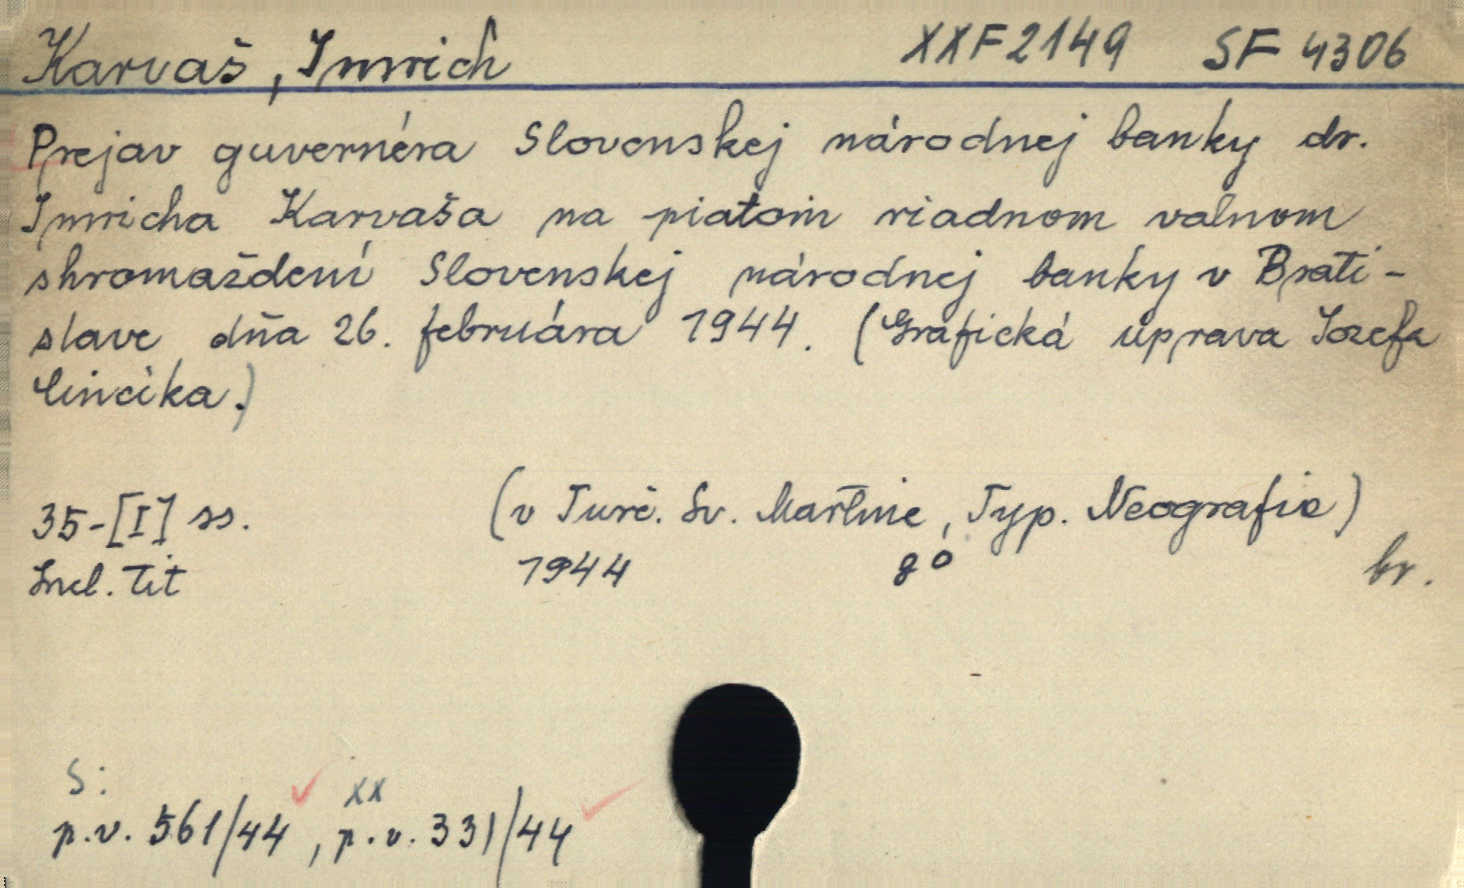 Karvaš, Imrich XXF2149 SF 4306
Prejav guvernéra Slovenskej národnej banky dr.
Imricha Karvaša na piatom riadnom valnom
shromaždení Slovenskej národnej banky v Brati-
slave dňa 26. februára 1944. (Grafická úprava Jozefa
Cincíka.)
35-[I] ss. (v Turč. Sv. Martine, Typ. Neografia)
Incl. tit 1944 8° br.
S: xx
p.v. 561/44, p.v. 331/44